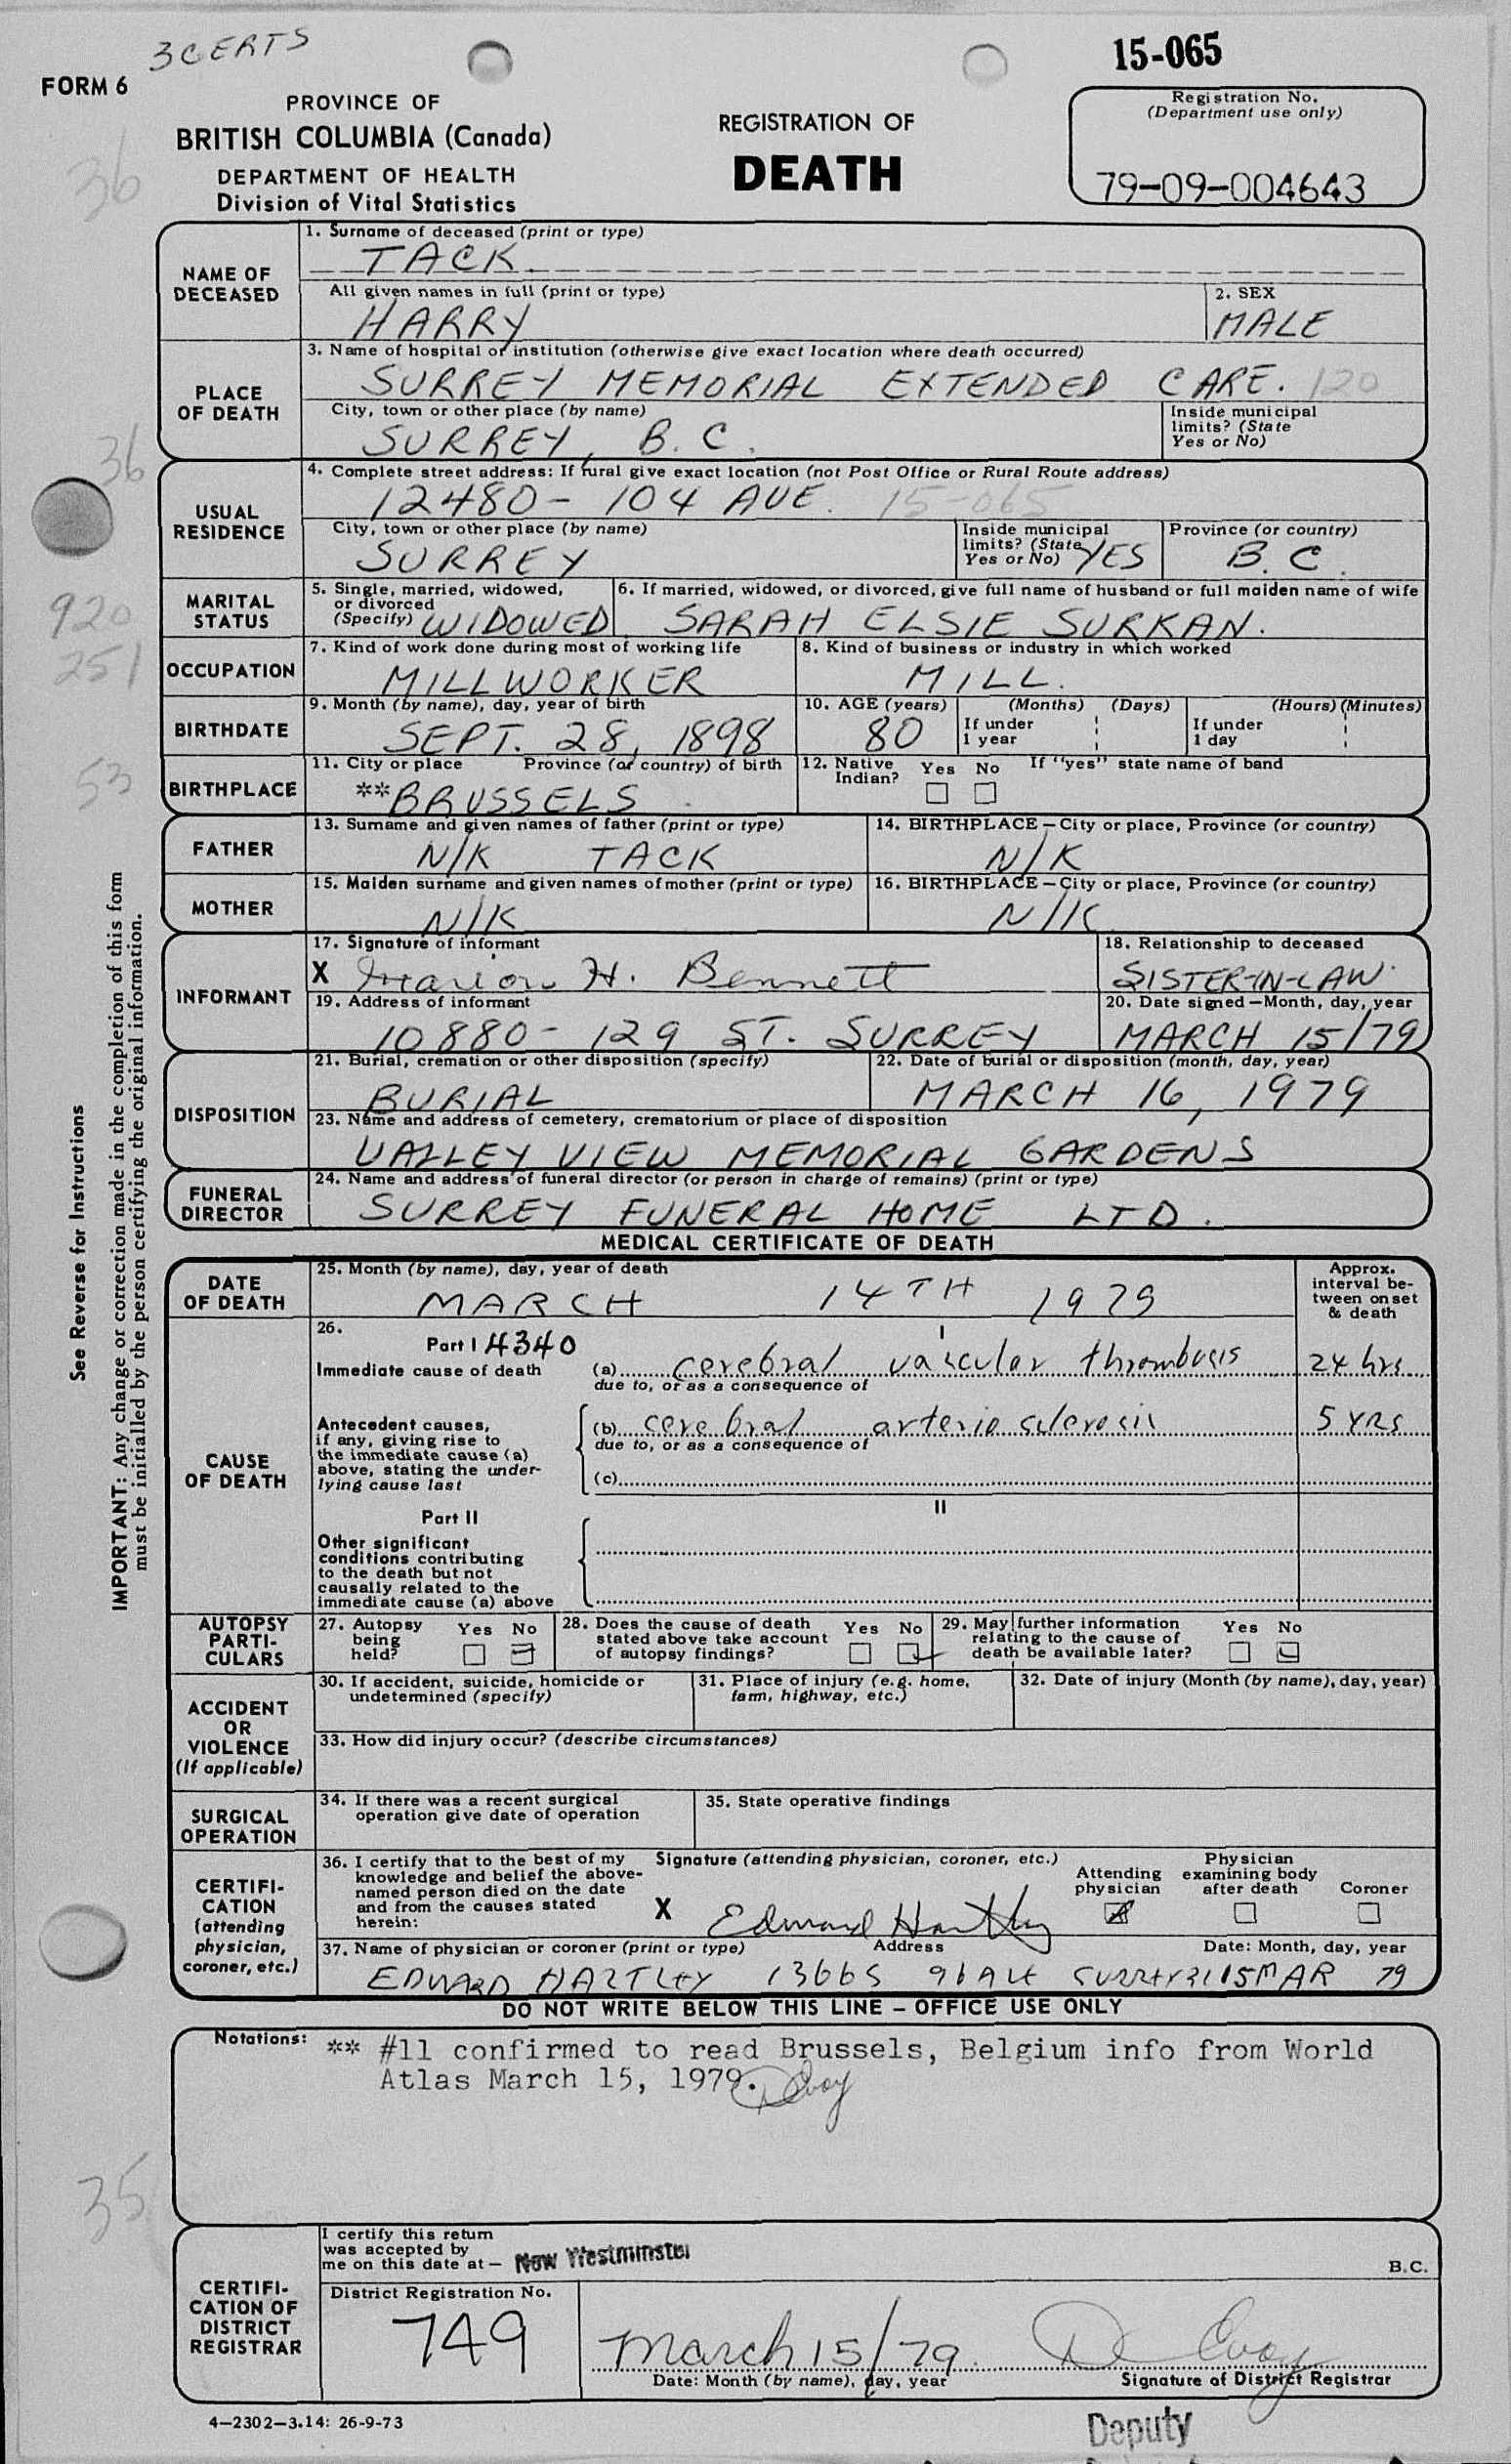 3 CERTS
15-065
FORM 6
PROVINCE OF
BRITISH COLUMBIA (Canada)
DEPARTMENT OF HEALTH
Division of Vital Statistics
REGISTRATION OF
DEATH
Registration No.
(Department use only)
79-09-004643
36
NAME OF
DECEASED
1. Surname of deceased (print or type)
TACK
All given names in full (print or type)
HARRY
2. SEX
MALE
PLACE
OF DEATH
3. Name of hospital or institution (otherwise give exact location where death occurred)
SURREY MEMORIAL EXTENDED CARE. 120
City, town or other place (by name)
SURREY, B.C.
Inside municipal
limits? (State
Yes or No)
36
USUAL
RESIDENCE
4. Complete street address: If rural give exact location (not Post Office or Rural Route address)
12480 - 104 AVE. 15-065
City, town or other place (by name)
SURREY
Inside municipal
limits? (State
Yes or No) YES
Province (or country)
B.C.
920
251
MARITAL
STATUS
5. Single, married, widowed,
or divorced
(Specify) WIDOWED
6. If married, widowed, or divorced, give full name of husband or full maiden name of wife
SARAH ELSIE SURKAN.
OCCUPATION
7. Kind of work done during most of working life
MILLWORKER
8. Kind of business or industry in which worked
MILL.
BIRTHDATE
9. Month (by name), day, year of birth
SEPT. 28, 1898
10. AGE (years)
80
(Months) (Days)
If under
1 year
(Hours) (Minutes)
If under
1 day
53
BIRTHPLACE
11. City or place Province (or country) of birth
**BRUSSELS
12. Native
Indian?
Yes No
If "yes" state name of band
FATHER
13. Surname and given names of father (print or type)
N/K TACK
14. BIRTHPLACE – City or place, Province (or country)
N/K
MOTHER
15. Maiden surname and given names of mother (print or type)
N/K
16. BIRTHPLACE – City or place, Province (or country)
N/K
INFORMANT
17. Signature of informant
X Marion H. Bennett
18. Relationship to deceased
SISTER-IN-LAW.
19. Address of informant
10880 - 129 ST. SURREY
20. Date signed – Month, day, year
MARCH 15/79
DISPOSITION
21. Burial, cremation or other disposition (specify)
BURIAL
22. Date of burial or disposition (month, day, year)
MARCH 16, 1979
23. Name and address of cemetery, crematorium or place of disposition
VALLEY VIEW MEMORIAL GARDENS
FUNERAL
DIRECTOR
24. Name and address of funeral director (or person in charge of remains) (print or type)
SURREY FUNERAL HOME LTD.
See Reverse for Instructions
IMPORTANT: Any change or correction made in the completion of this form
must be initialled by the person certifying the original information.
MEDICAL CERTIFICATE OF DEATH
DATE
OF DEATH
25. Month (by name), day, year of death
MARCH 14TH 1979
Approx.
interval be-
tween onset
& death
CAUSE
OF DEATH
26.
Part I 4340
I
Immediate cause of death
(a) cerebral vascular thrombosis 24 hrs
due to, or as a consequence of
Antecedent causes,
if any, giving rise to
the immediate cause (a)
above, stating the under-
lying cause last
(b) cerebral arteriosclerosis 5 YRS
due to, or as a consequence of
(c)
Part II
II
Other significant
conditions contributing
to the death but not
causally related to the
immediate cause (a) above
AUTOPSY
PARTI-
CULARS
27. Autopsy
being
held?
Yes No
28. Does the cause of death
stated above take account
of autopsy findings?
Yes No
29. May further information
relating to the cause of
death be available later?
Yes No
ACCIDENT
OR
VIOLENCE
(If applicable)
30. If accident, suicide, homicide or
undetermined (specify)
31. Place of injury (e.g. home,
farm, highway, etc.)
32. Date of injury (Month (by name), day, year)
33. How did injury occur? (describe circumstances)
SURGICAL
OPERATION
34. If there was a recent surgical
operation give date of operation
35. State operative findings
CERTIFI-
CATION
(attending
physician,
coroner, etc.)
36. I certify that to the best of my
knowledge and belief the above-
named person died on the date
and from the causes stated
herein:
Signature (attending physician, coroner, etc.)
X Edward Hartley
Attending
physician
Physician
examining body
after death
Coroner
37. Name of physician or coroner (print or type) Address Date: Month, day, year
EDWARD HARTLEY 13665 96 AVE SURREY 15 MAR 79
DO NOT WRITE BELOW THIS LINE – OFFICE USE ONLY
Notations:
** #11 confirmed to read Brussels, Belgium info from World
Atlas March 15, 1979.
35
CERTIFI-
CATION OF
DISTRICT
REGISTRAR
I certify this return
was accepted by
me on this date at – New Westminster
B.C.
District Registration No.
749
March 15/79
Date: Month (by name), day, year
Signature of District Registrar
4–2302–3.14: 26-9-73
Deputy